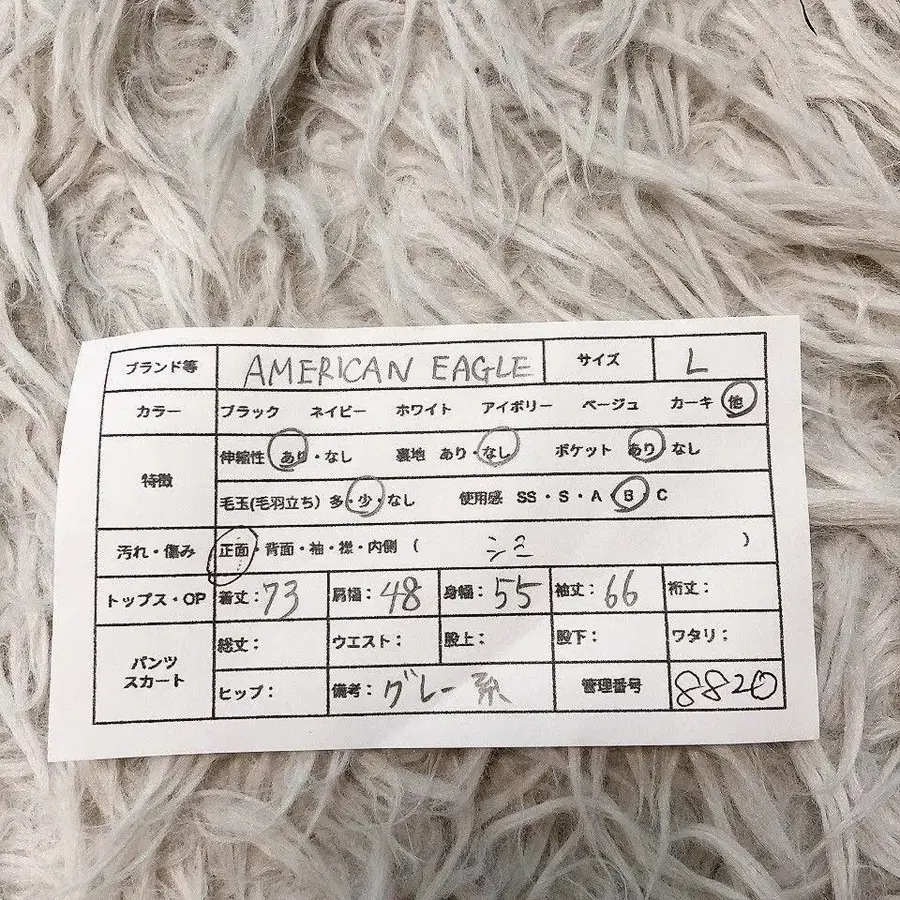 ブランド等 AMERICAN EAGLE サイズ L
カラー ブラック ネイビー ホワイト アイボリー ベージュ カーキ 他
特徴 伸縮性 あり・なし 裏地 あり・なし ポケット あり・なし
毛玉(毛羽立ち) 多・少・なし 使用感 SS・S・A・B・C
汚れ・傷み 正面・背面・袖・襟・内側 ( シミ )
トップス・OP 着丈：73 肩幅：48 身幅：55 袖丈：66 裄丈：
パンツ スカート 総丈： ウエスト： 股上： 股下： ワタリ：
ヒップ： 備考：グレー系 管理番号 8820